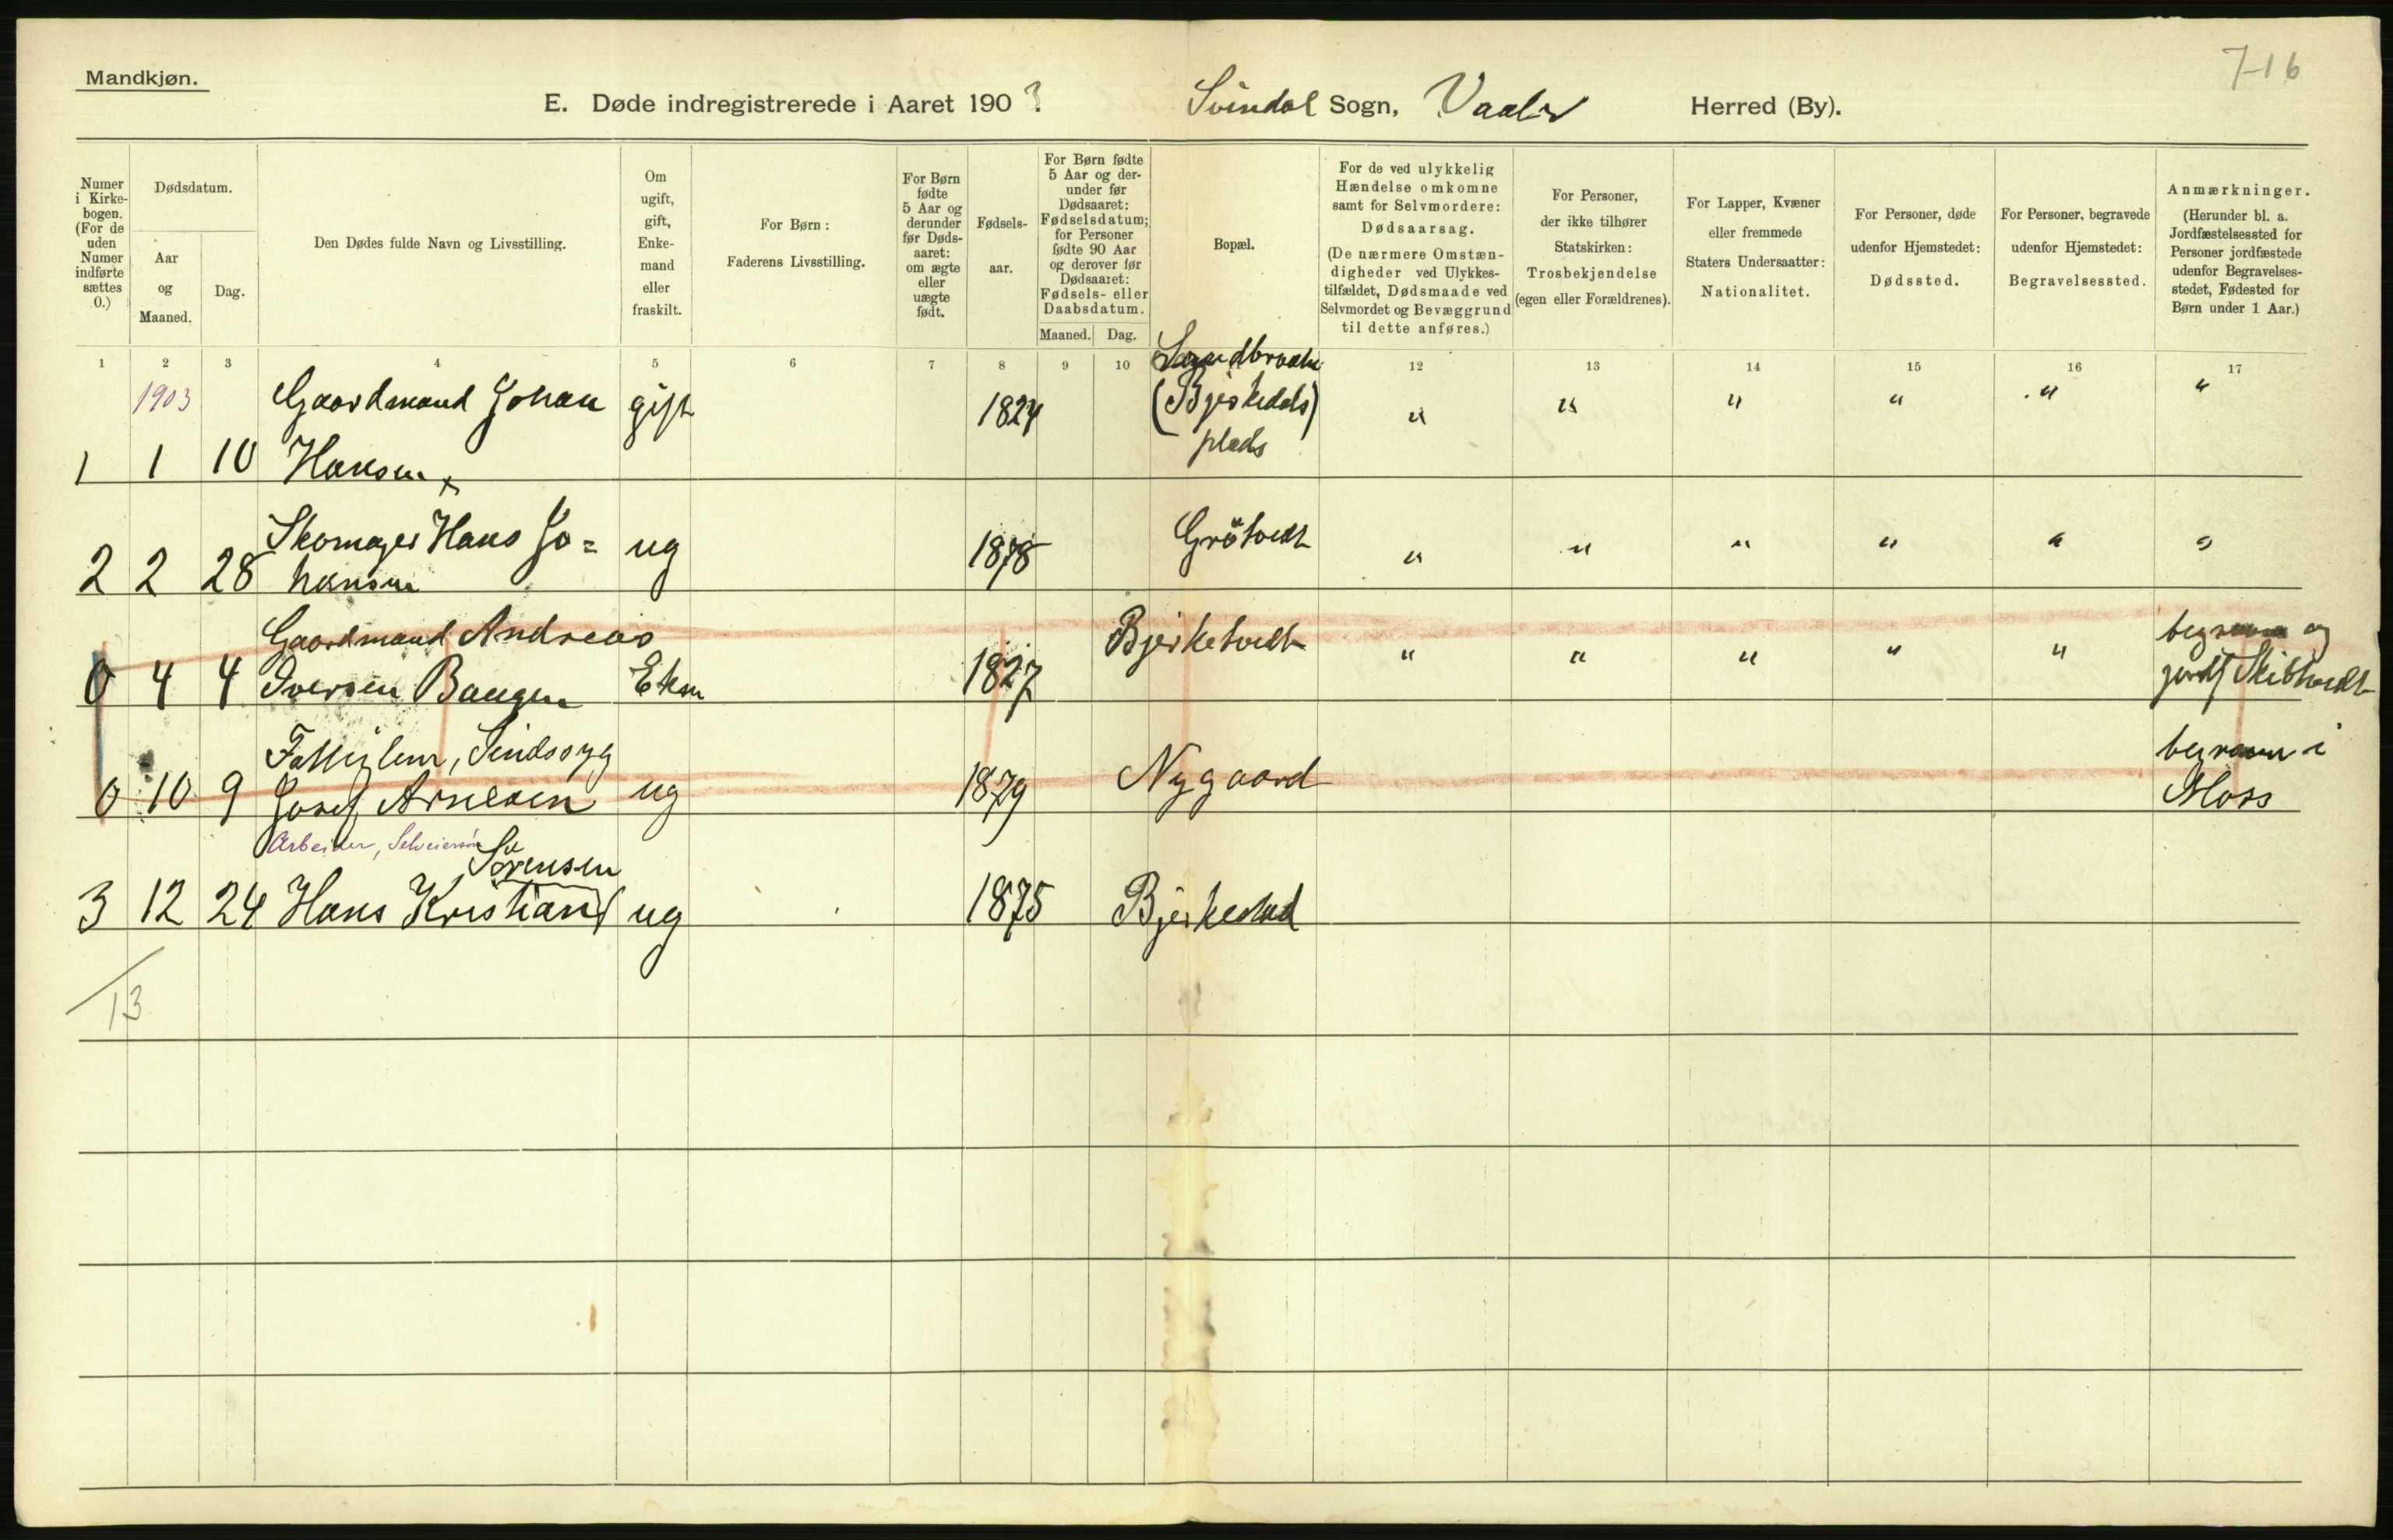 7-16
Mandkjøn.
E. Døde indregistrerede i Aaret 1903. Svindal Sogn, Vaaler Herred (By).
Numer i Kirkebogen. (For de uden Numer indførte sættes 0.)
Dødsdatum.
Aar og Maaned.
Dag.
Den Dødes fulde Navn og Livsstilling.
Om ugift, gift, Enkemand eller fraskilt.
For Børn: Faderens Livsstilling.
For Børn fødte 5 Aar og derunder før Dødsaaret: om ægte eller uægte født.
Fødselsaar.
For Børn fødte 5 Aar og derunder før Dødsaaret: Fødselsdatum; for Personer fødte 90 Aar og derover før Dødsaaret: Fødsels- eller Daabsdatum.
Maaned. Dag.
Bopæl.
For de ved ulykkelig Hændelse omkomne samt for Selvmordere: Dødsaarsag.
(De nærmere Omstændigheder ved Ulykkestilfældet, Dødsmaade ved Selvmordet og Bevæggrund til dette anføres.)
For Personer, der ikke tilhører Statskirken: Trosbekjendelse (egen eller Forældrenes).
For Lapper, Kvæner eller fremmede Staters Undersaatter: Nationalitet.
For Personer, døde udenfor Hjemstedet: Dødssted.
For Personer, begravede udenfor Hjemstedet: Begravelsessted.
Anmærkninger.
(Herunder bl. a. Jordfæstelsessted for Personer jordfæstede udenfor Begravelsesstedet, Fødested for Børn under 1 Aar.)
1 2 3 4 5 6 7 8 9 10 12 13 14 15 16 17
1903 Gaardmand Johan gift 1824 (Bjerkedals) " " " " " "
1 1 10 Hansen x plads
Skomager Hans Jo= ug 1878 Grötvedt " " " " " "
2 2 28 hansen
Gaardmand Andreas Bjerketvedt " " " " " begraven og
0 4 4 Iversen Baugen Ekm 1827 jordf Skibtvedt
Fattiglem, Sindssyg begraven i
0 10 9 Josef Arnesen ug 1879 Nygaard Moss
Arbeider, Selveiersøn
Sörensen
3 12 24 Hans Kristian ug 1875 Bjerkestad
13